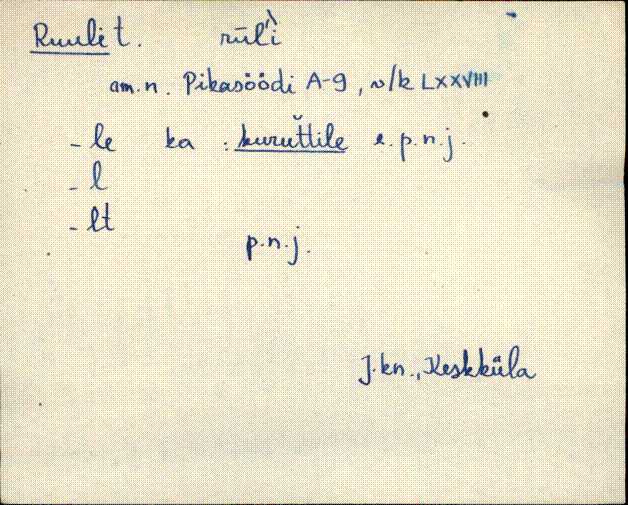 Ruuli t. rūl'i
am.n. Pikasöödi A-9, v/k LXXVIII
- le ka : kuruttile e.p.n.j.
- l
- lt
p.n.j.
J.kn., Keskküla